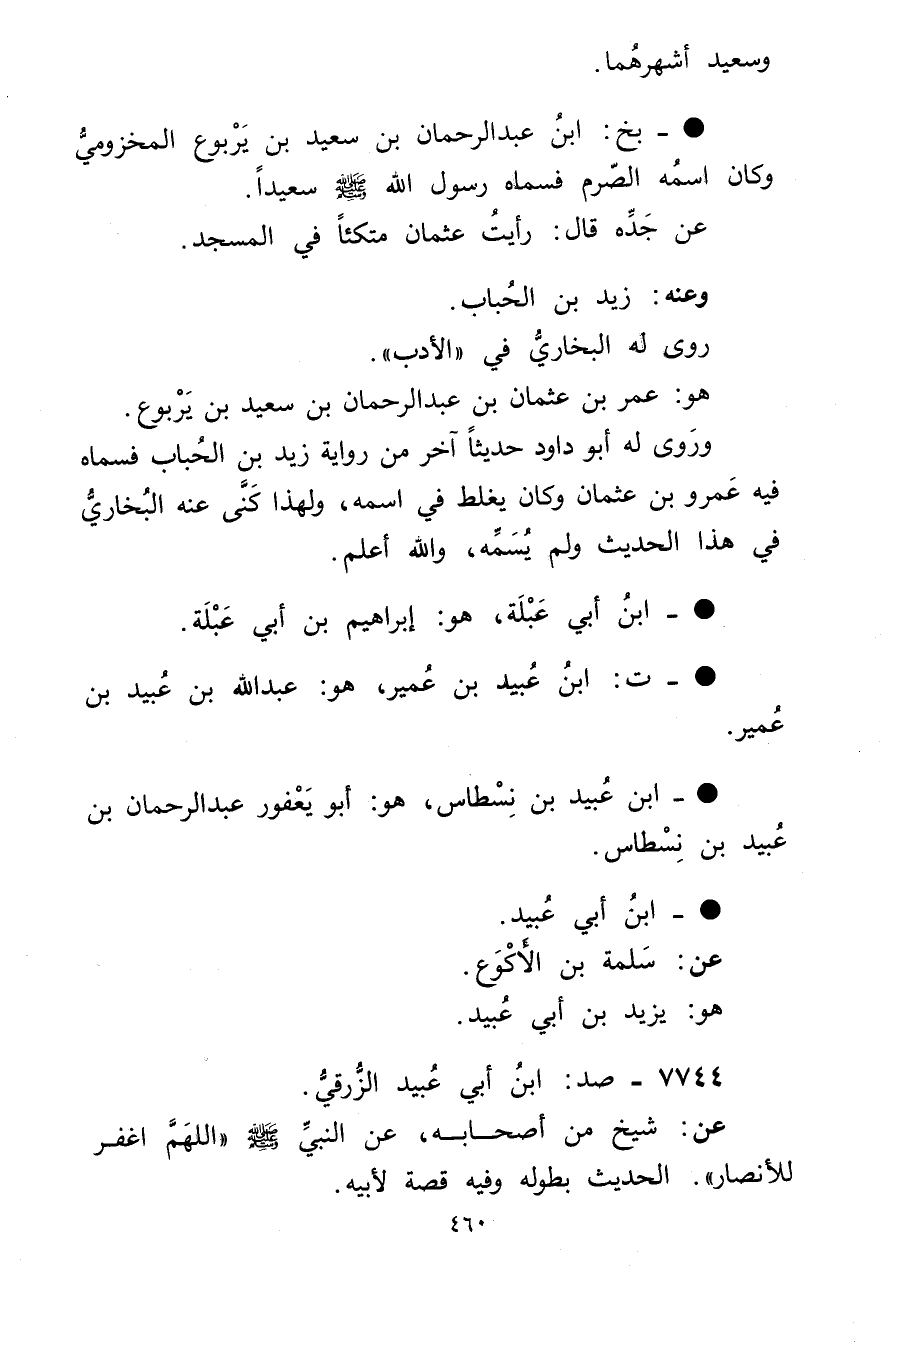 وسعيد أشهرهُما.
● ـ بخ: ابنُ عبدالرحمان بن سعيد بن يَرْبوع المخزوميُّ
وكان اسمُه الصّرم فسماه رسول الله ﷺ سعيداً.
عن جَدِّه قال: رأيتُ عثمان متكئاً في المسجد.
وعنه: زيد بن الحُباب.
روى له البخاريُّ في «الأدب».
هو: عمر بن عثمان بن عبدالرحمان بن سعيد بن يَرْبوع.
ورَوى له أبو داود حديثاً آخر من رواية زيد بن الحُباب فسماه
فيه عَمرو بن عثمان وكان يغلط في اسمه، ولهذا كَنَّى عنه البُخاريُّ
في هذا الحديث ولم يُسَمِّه، والله أعلم.
● ـ ابنُ أبي عَبْلَة، هو: إبراهيم بن أبي عَبْلَة.
● ـ ت: ابنُ عُبيد بن عُمير، هو: عبدالله بن عُبيد بن
عُمير.
● ـ ابن عُبيد بن نِسْطاس، هو: أبو يَعْفور عبدالرحمان بن
عُبيد بن نِسْطاس.
● ـ ابنُ أبي عُبيد.
عن: سَلمة بن الأَكْوَع.
هو: يزيد بن أبي عُبيد.
٧٧٤٤ ـ صد: ابنُ أبي عُبيد الزُّرقيُّ.
عن: شيخ من أصحابه، عن النبيِّ ﷺ «اللهَمَّ اغفر
للأنصار». الحديث بطوله وفيه قصة لأبيه.
٤٦٠